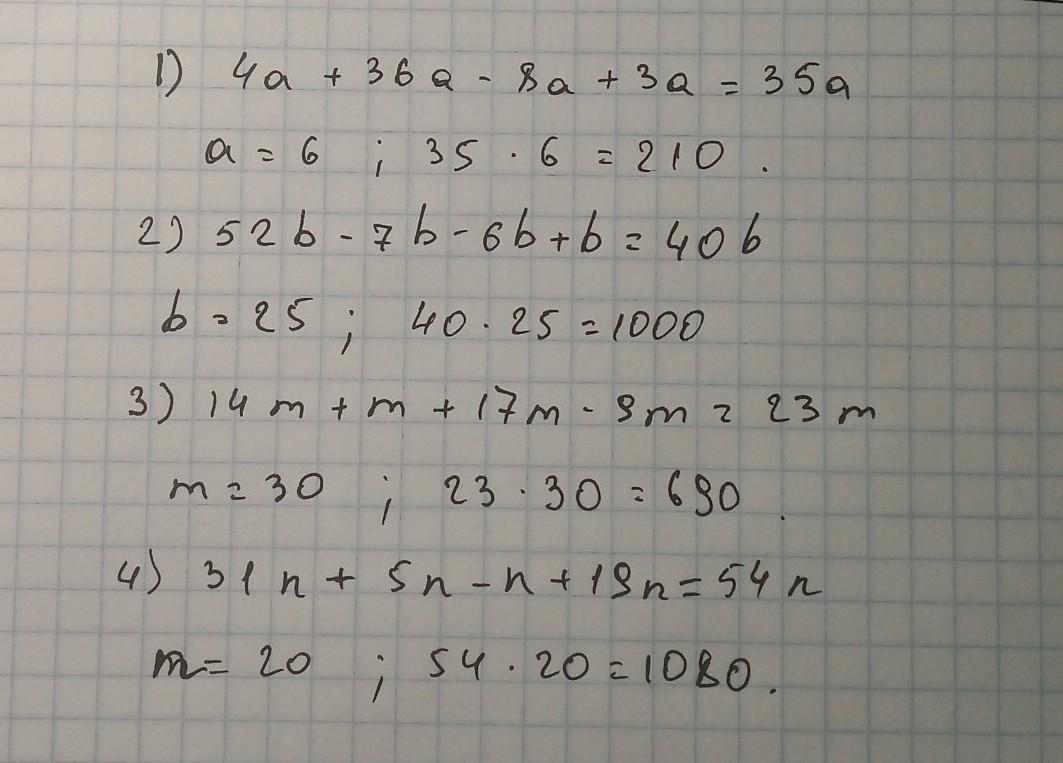 1) 4a + 36a - 8a + 3a = 35a
a = 6 ; 35 · 6 = 210 .
2) 52b - 7b - 6b + b = 40b
b = 25 ; 40 · 25 = 1000
3) 14m + m + 17m - 9m = 23m
m = 30 ; 23 · 30 = 690 .
4) 31n + 5n - n + 19n = 54n
m = 20 ; 54 · 20 = 1080 .